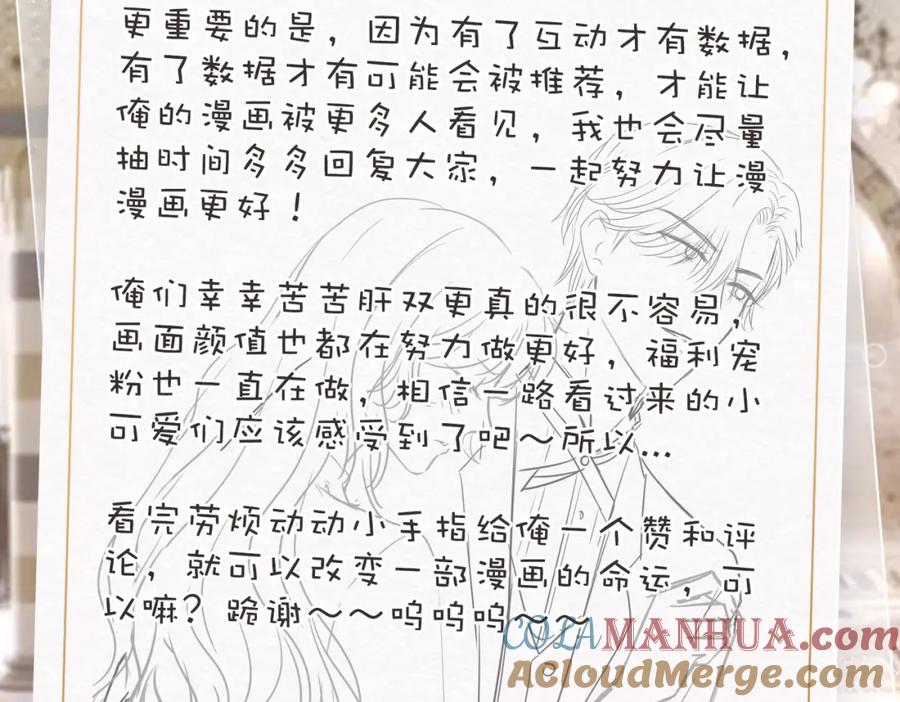 更重要的是，因为有了互动才有数据，
有了数据才有可能会被推荐，才能让
俺的漫画被更多人看见，我也会尽量
抽时间多多回复大家，一起努力让漫
漫画更好！
俺们幸幸苦苦肝双更真的很不容易，
画面颜值也都在努力做更好，福利宠
粉也一直在做，相信一路看过来的小
可爱们应该感受到了吧～所以...
看完劳烦动动小手指给俺一个赞和评
论，就可以改变一部漫画的命运，可
以嘛？跪谢～～呜呜呜～～
COLAMANHUA.com
ACloudMerge.com